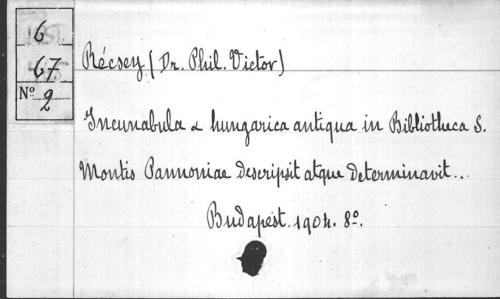 6
67
Nº 2
Récsey (Dr. Phil. Victor)
Incunabula & hungarica antiqua in Bibliotheca S.
Montis Pannoniae descripsit atque determinavit..
Budapest. 1904. 8º.